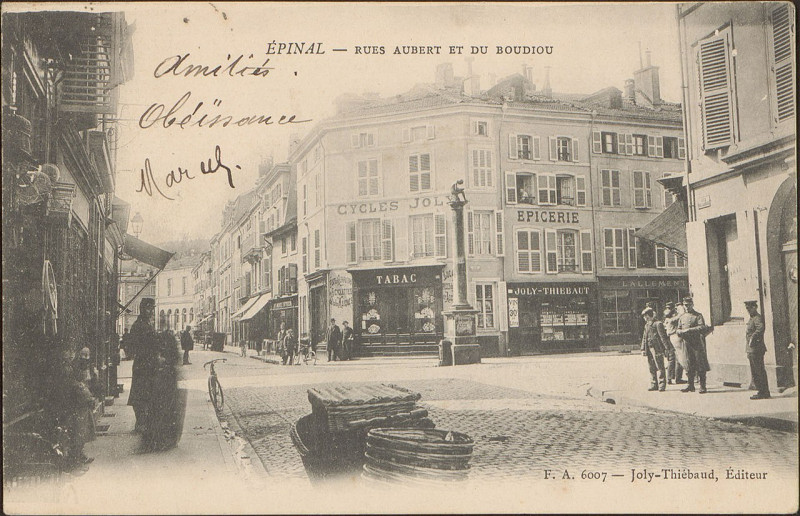 ÉPINAL — RUES AUBERT ET DU BOUDIOU
Amitiés.
Obéïssance
Marcel.
CYCLES JOLY
EPICERIE
TABAC
JOLY-THIEBAUT
LALLEMENT
F. A. 6007 — Joly-Thiébaud, Éditeur